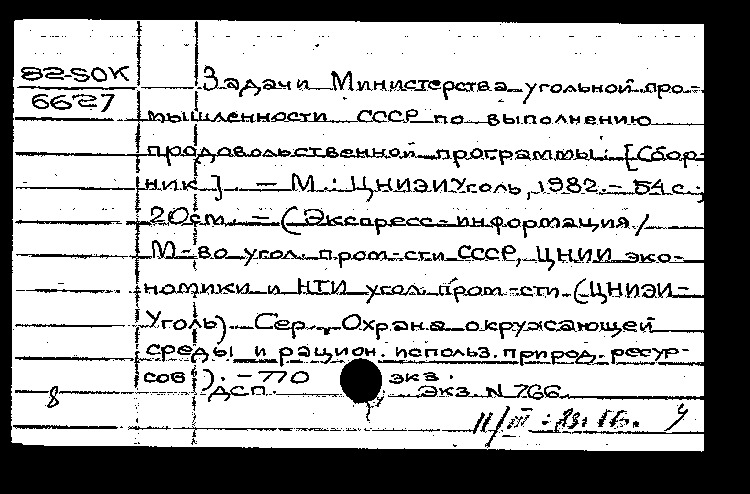 82-5OK
6627
Задачи Министерства угольной про-
мышленности СССР по выполнению
продовольственной программы: [Сбор-
ник]. — М.: ЦНИЭИУголь, 1982. — 54 с.;
20см. — (Экспресс-информация /
М-во угол. пром-сти СССР, ЦНИИ эко-
номики и НТИ угол. пром-сти (ЦНИЭИ-
Уголь). Сер., Охрана окружающей
среды и рацион. использ. природ. ресур-
сов). - 770 экз.
8 ДСП. экз. N 766.
11/III - 83г.